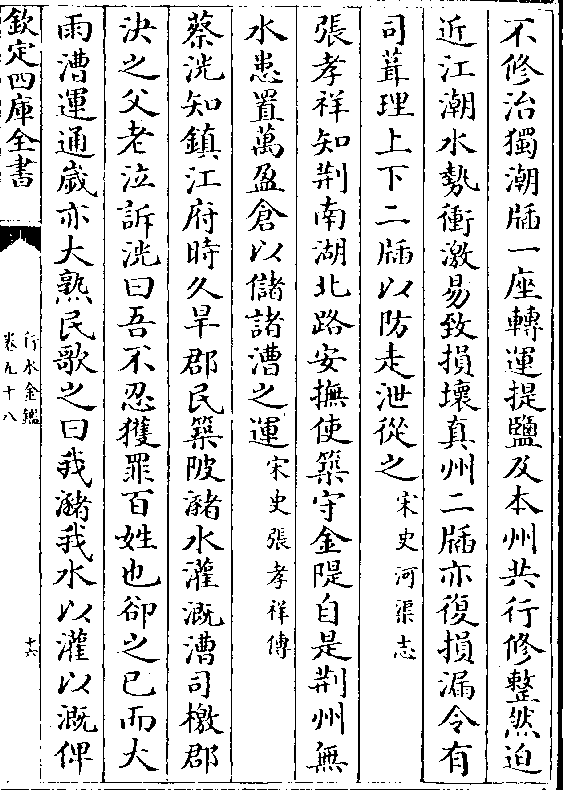 不修治獨潮牐一座轉運提鹽及本州共行修整然迫
近江潮水勢衝激易致損壞真州二牐亦復損漏令有
司葺理上下二牐以防走泄從之宋史河渠志
張孝祥知荆南湖北路安撫使築守金隄自是荆州無
水患置萬盈倉以儲諸漕之運宋史張孝祥傳
蔡洸知鎮江府時久旱郡民築陂瀦水灌溉漕司檄郡
決之父老泣訴洸曰吾不忍獲罪百姓也卻之已而大
雨漕運通歲亦大熟民歌之曰我瀦我水以灌以溉俾
欽定四庫全書
行水金鑑
卷九十八
十六